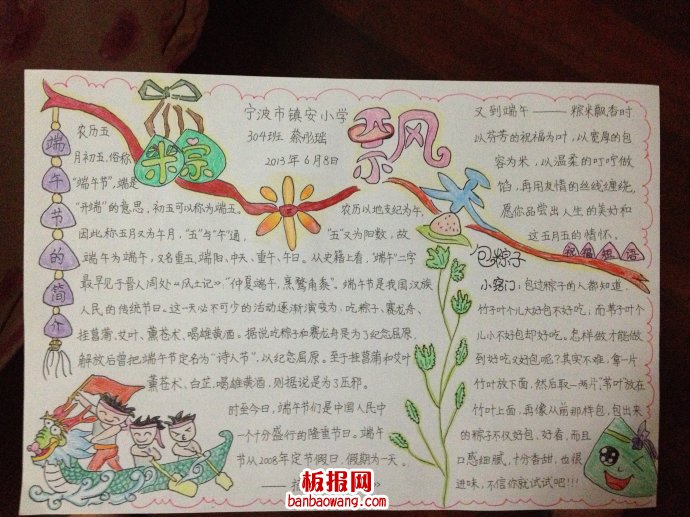 宁波市镇安小学
304班 蔡彤瑶
2013年6月8日
粽米飘香
端午节的简介
农历五
月初五,俗称
“端午节”,端是
“开端”的意思,初五可以称为端五。
农历以地支纪为午,
因此称五月又为午月,“五”与“午”通,
“五”又为阳数,故
端午为端午,又名重五、端阳、中天、重午、午日。从史籍上看,“端午”二字
最早见于晋人周处《风土记》:“仲夏端午,烹鹜角黍”。端午节是我国汉族
人民的传统节日。这一天必不可少的活动逐渐演变为:吃粽子、赛龙舟、
挂菖蒲、艾叶、薰苍术、喝雄黄酒。据说吃粽子和赛龙舟是为了纪念屈原。
解放后曾把端午节定名为“诗人节”,以纪念屈原。至于挂菖蒲和艾叶
薰苍术、白芷、喝雄黄酒,则据说是为了压邪。
时至今日,端午节们是中国人民中
一个十分盛行的隆重节日。端午
节从2008年定节假日,假期为一天。
又到端午——粽米飘香时
以芬芳的祝福为叶,以宽厚的包
容为米,以温柔的叮咛做
馅,再用友情的丝线缠绕,
愿你品尝出人生的美好和
这五月五的情怀。
祝福短语
包粽子
小窍门:包过粽子的人都知道,
竹子叶个儿大好包不好吃,而苇子叶个
儿小不好包却好吃。怎样做才能做
到好吃又好包呢?其实不难,拿一片
竹叶放下面,然后取一两片苇叶放在
竹叶上面,再像从前那样包,包出来
的粽子不仅好包、好看,而且
口感细腻,十分香甜,也很
进味,不信你就试试吧!!!
板报网
banbaowang.com